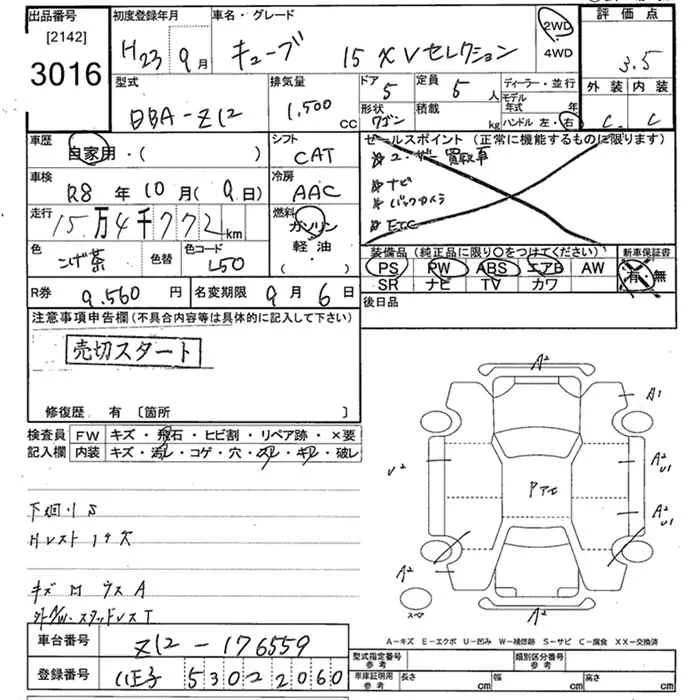 出品番号
[2142]
3016
初度登録年月
H23年9月
車名・グレード
キューブ 15 X Vセレクション
2WD
4WD
評価点
3.5
外装 内装
C C
型式
DBA-Z12
排気量
1,500 CC
ドア
5
定員
5人
形状
ワゴン
積載
kg
ディーラー・並行
モデル年式 年
ハンドル 左・右
車歴
自家用・( )
シフト
CAT
セールスポイント (正常に機能するものに限ります)
ユーザー買取車
ナビ
バックカメラ
ETC
車検
R8年10月(9日)
冷房
AAC
走行
15万4千772km
燃料
ガソリン
軽油
( )
色
こげ茶
色替
色コード
L50
装備品 (純正品に限り○をつけてください)
PS PW ABS エアB AW
SR ナビ TV カワ
新車保証書
有 無
R券 9,560円
名変期限 9月6日
後日品
注意事項申告欄(不具合内容等は具体的に記入して下さい)
売切スタート
修復歴 有 [箇所 ]
検査員記入欄
FW キズ・飛石・ヒビ割・リペア跡・×要
内装 キズ・汚レ・コゲ・穴・スレ・キレ・破レ
下廻りS
Hレスト1ケ欠
A2
A1
U2
A2
U1
A2
U1
A2
A2
スペア
A-キズ E-エクボ U-凹み W-補修跡 S-サビ C-腐食 XX-交換済
車台番号 Z12-176559
登録番号 5302060
型式指定番号 参考
類別区分番号 参考
車庫証明用 参考
長さ cm
幅 cm
高さ cm